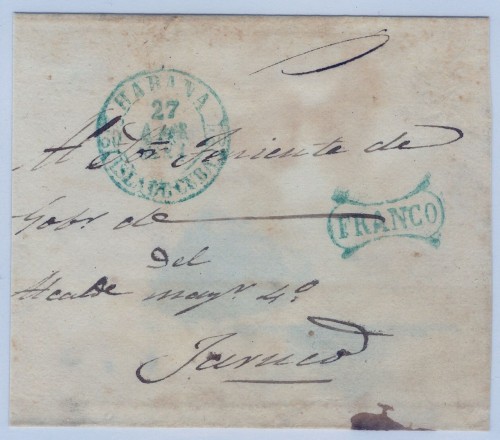 HABANA
27
ABR
ISLA DE CUBA
Al Sor Teniente de
Gobr. de
FRANCO
del
Alcalde mayr. 4º
Jaruco